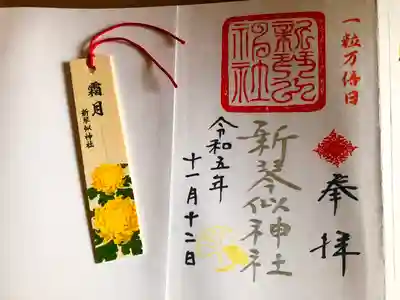 一粒万倍日
奉拝
新琴似神社
令和五年
十一月十二日
新琴似
神社
霜月
新琴似神社